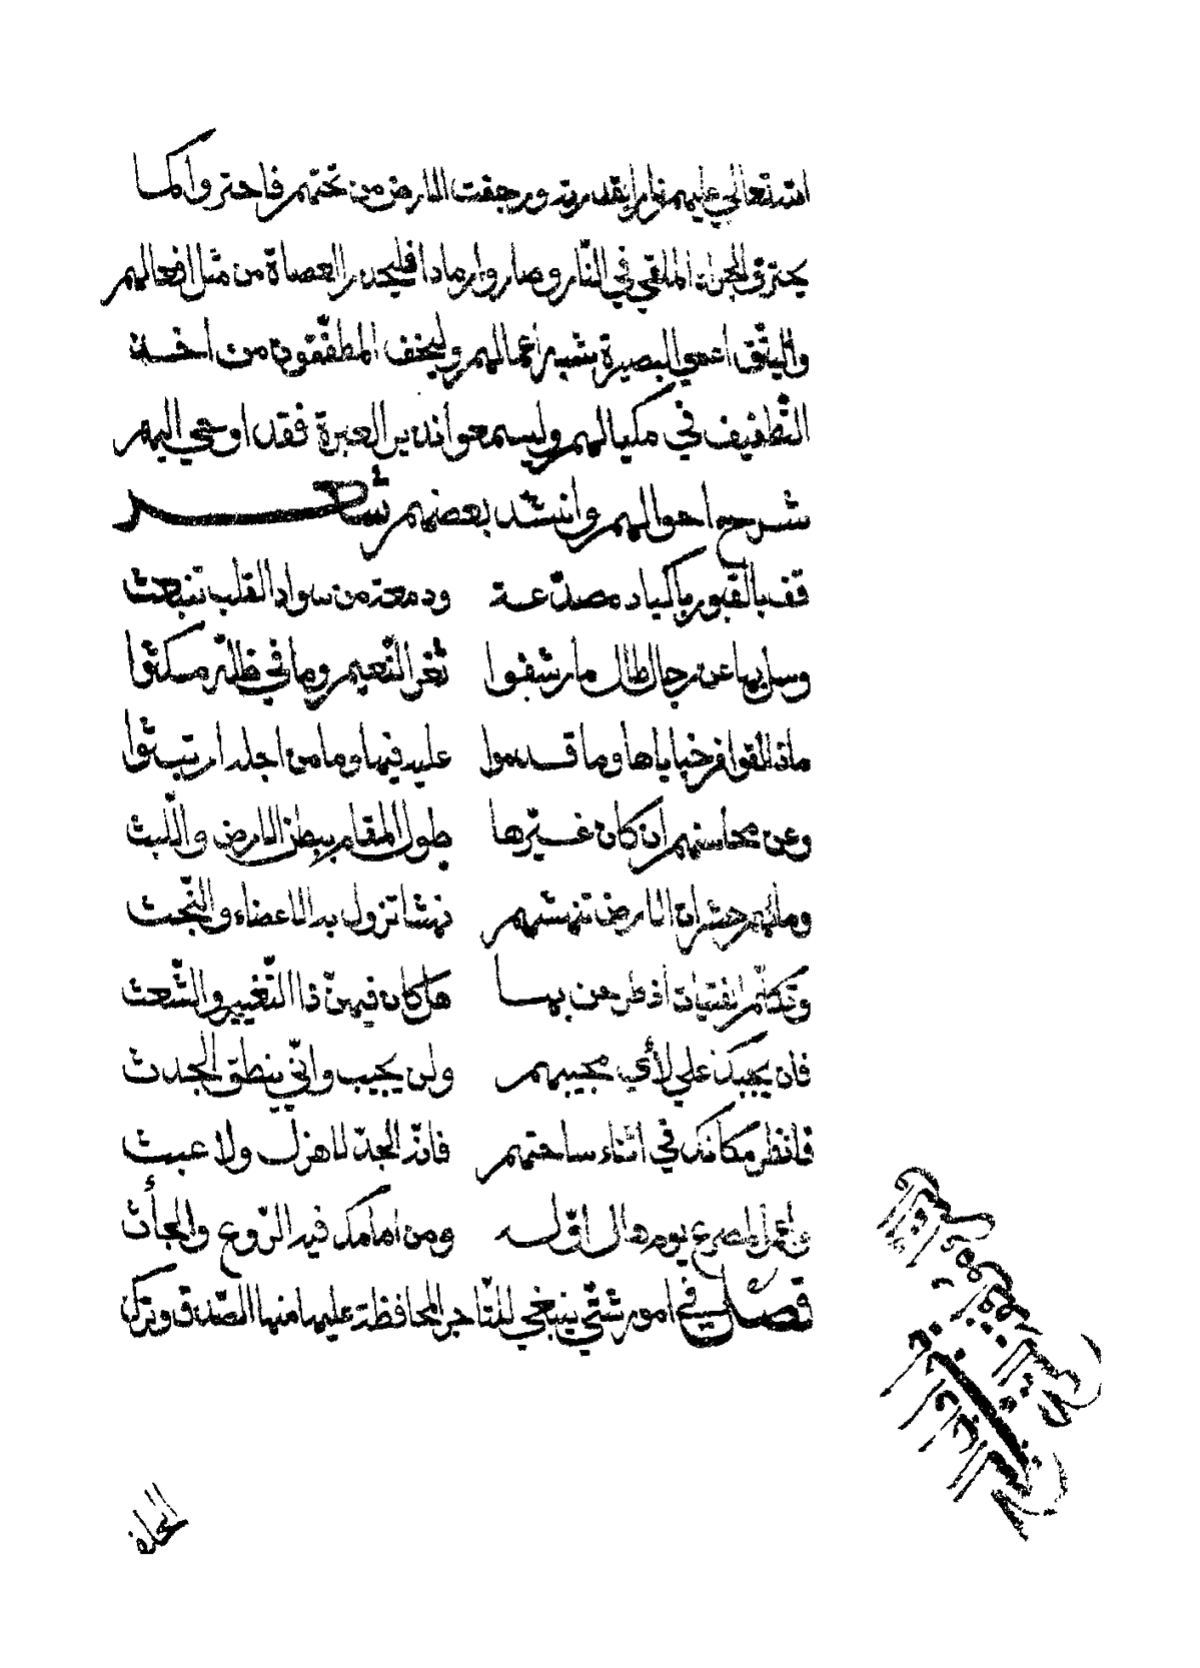 الله تعالى عليهم نارا بقدرته ورجفت الارض من تحتهم فاحترقوا كما
يحترق الجراد الملقي في النّار وصاروا رمادا فليحذر العصاة من مثل افعالهم
اعمي البصيرة اعمالهم وليخف المطفّفون من اخذة
التّطفيف في مكيالهم وليسمعوا نذير العبرة فقد اوحي اليهم
شرح احوالهم وانشد بعضهم شعر
قف بالقبور باكباد مصدّعة ودمعة من سواد القلب تنبعث
وسل بها عن رجال طال ما رشفوا ثغر النّعيم وما في ظلّه مكثوا
ماذا لقوا في خباياها وما قدموا عليه فيها وما من اجله ارتبثوا
وعن محاسنهم ان كان غيّرها طول المقام ببطن الارض واللّبث
وما لهم حشرات الارض تنهشهم نهشا تزول به الاعضاء والجثث
الفتيات بها هل كان فيهنّ ذا التّغيير والشّعث
فان يجبك علي لأي مجيبهم ولن يجيب وانّي ينطق الجدث
فانظر مكانك في اثناء ساحتهم فانّه الجدّ لا هزل ولا عبث
واعمل لمصرع يوم هال اوّله ومن امامك فيه الرّوع والجأث
فصل في امور شتّي ينبغي للتّاجر المحافظة عليها منها الصّدق وترك